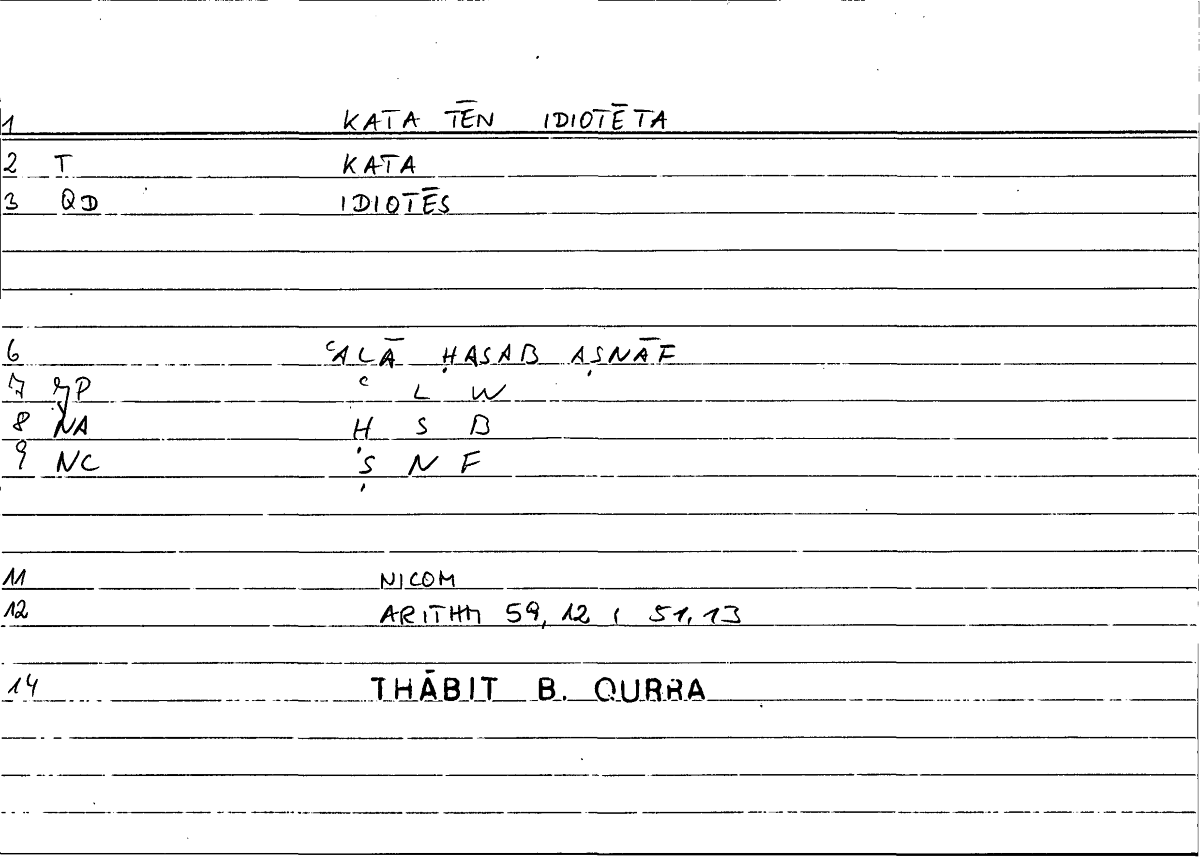 1 KATA TĒN IDIOTĒTA
2 T KATA
3 QD IDIOTĒS
6 ʿALĀ ḤASAB AṢNĀF
7 P ʿ L W
8 NA Ḥ S B
9 NC Ṣ N F
11 NICOM
12 ARITHM 59,12 ; 51,13
14 THĀBIT B. QURRA